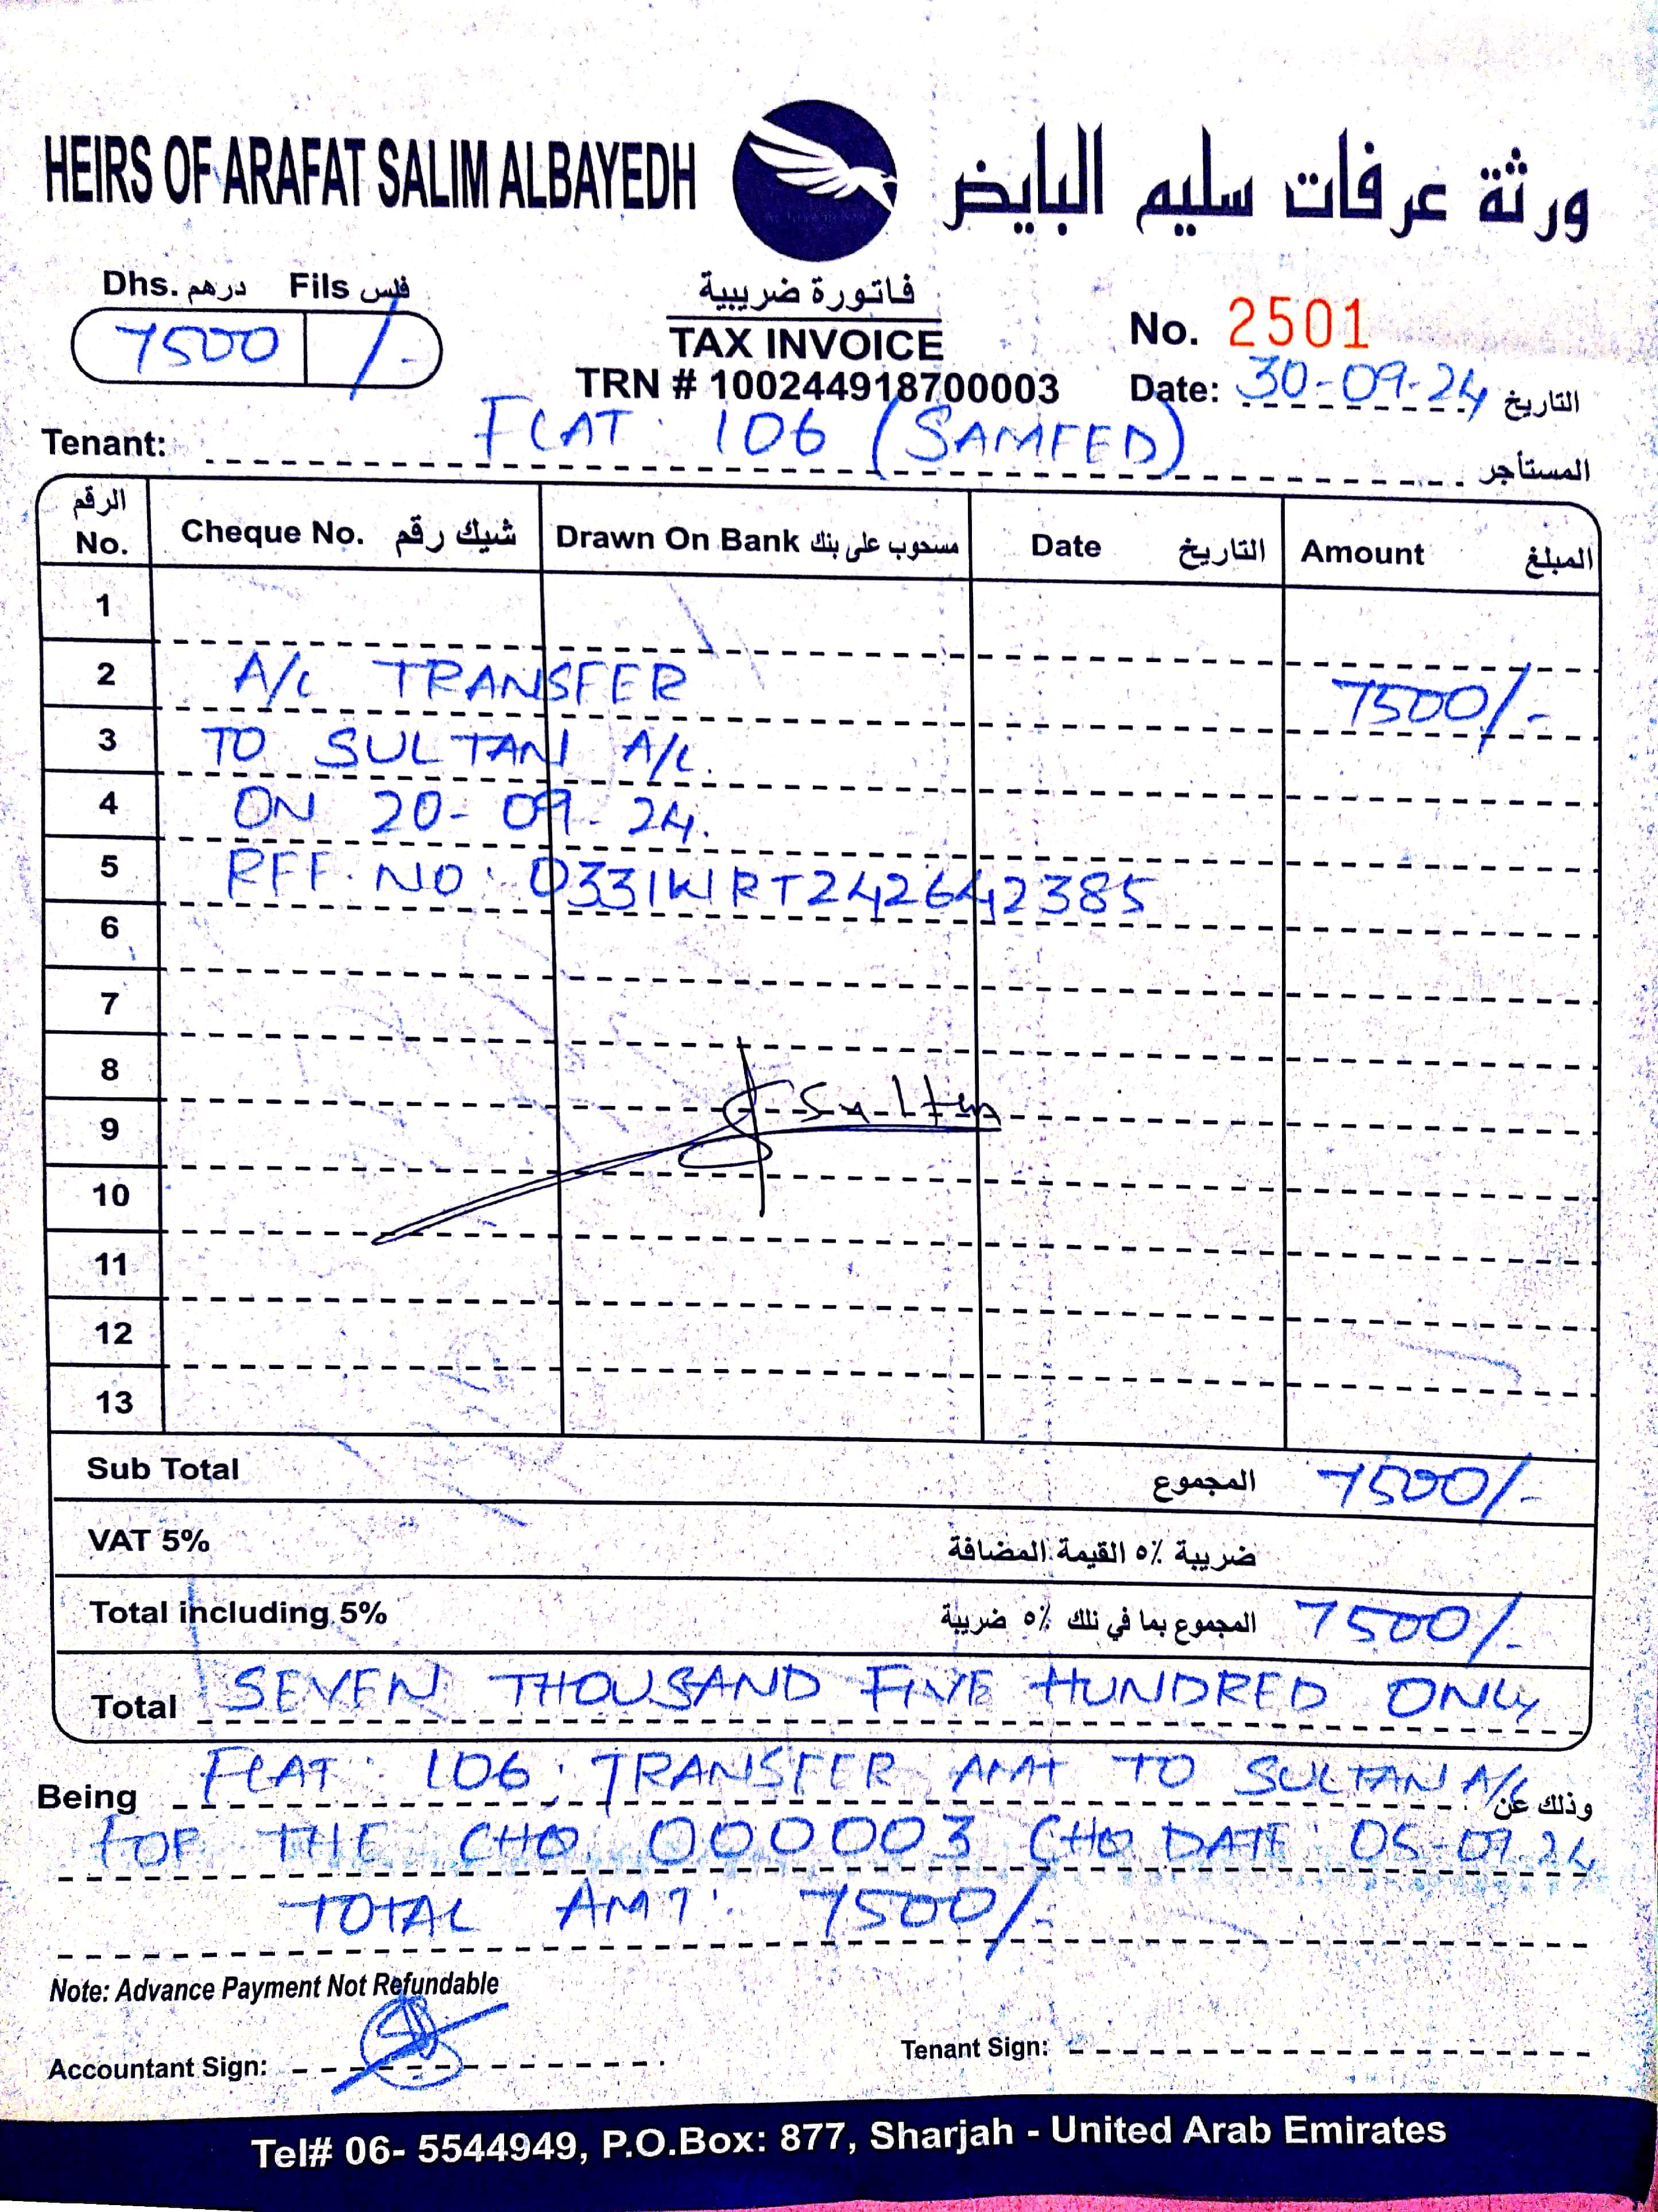 HEIRS OF ARAFAT SALIM ALBAYEDH
ورثة عرفات سليم البايض
Dhs. درهم Fils فلس
7500 /-
فاتورة ضريبية
TAX INVOICE
TRN # 100244918700003
No. 2501
Date: 30-09-24 التاريخ
Tenant: FLAT 106 (SAMFED) المستأجر
الرقم No. Cheque No. شيك رقم Drawn On Bank مسحوب على بنك Date التاريخ Amount المبلغ
1
2 A/C TRANSFER 7500/-
3 TO SULTAN A/C.
4 ON 20-09-24.
5 REF. NO: 0331WRT242642385
6
7
8
Sultan
9
10
11
12
13
Sub Total المجموع 7500/-
VAT 5% ضريبة ٥٪ القيمة المضافة
Total including 5% المجموع بما في ذلك ٥٪ ضريبة 7500/-
Total SEVEN THOUSAND FIVE HUNDRED ONLY
Being FLAT: 106, TRANSFER AMT TO SULTAN A/C وذلك عن
FOR THE CHQ 000003 CHQ DATE: 05-09-24
TOTAL AMT: 7500/-
Note: Advance Payment Not Refundable
Accountant Sign:
Tenant Sign:
Tel# 06- 5544949, P.O.Box: 877, Sharjah - United Arab Emirates